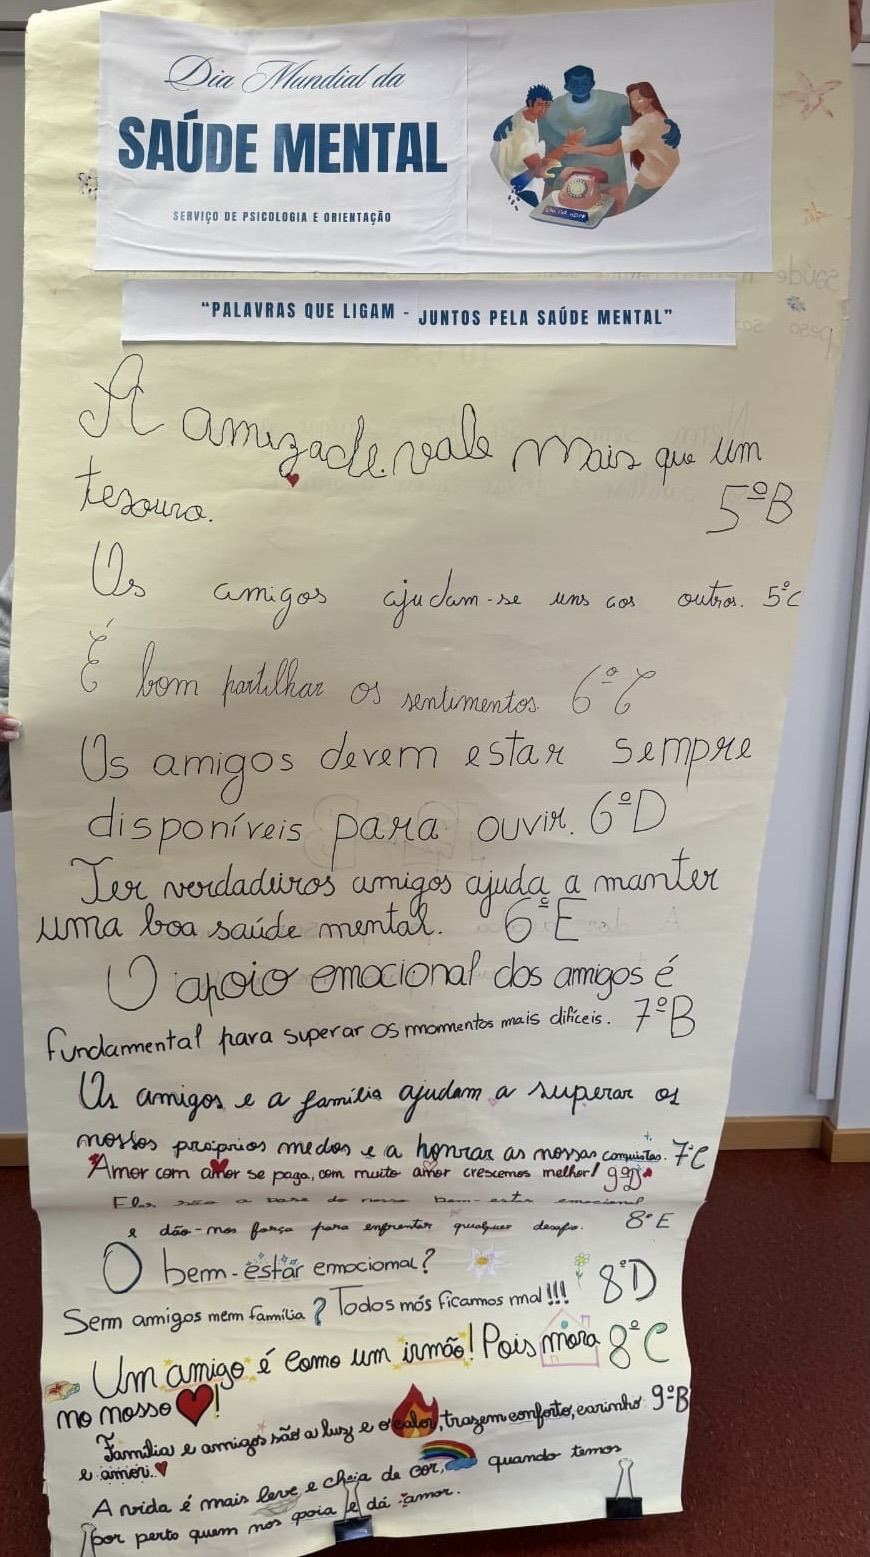 Dia Mundial da
SAÚDE MENTAL
SERVIÇO DE PSICOLOGIA E ORIENTAÇÃO
"PALAVRAS QUE LIGAM - JUNTOS PELA SAÚDE MENTAL"
A amizade vale mais que um
tesouro. 5ºB
Os amigos ajudam-se uns aos outros. 5ºC
É bom partilhar os sentimentos 6ºC
Os amigos devem estar sempre
disponíveis para ouvir. 6ºD
Ter verdadeiros amigos ajuda a manter
uma boa saúde mental. 6ºE
O apoio emocional dos amigos é
fundamental para superar os momentos mais difíceis. 7ºB
Os amigos e a família ajudam a superar os
nossos próprios medos e a honrar as nossas conquistas. 7ºC
Amor com amor se paga, com muito amor crescemos melhor! 9ºD
Eles são a base do nosso bem-estar emocional
e dão-nos força para enfrentar qualquer desafio. 8ºE
O bem-estar emocional?
Sem amigos nem família? Todos nós ficamos mal!!! 8ºD
Um amigo é como um irmão! Pois mora 8ºC
no nosso !
Família e amigos são a luz e o calor, trazem conforto, carinho 9ºB
e amor.
A vida é mais leve e cheia de cor, quando temos
por perto quem nos apoia e dá amor.